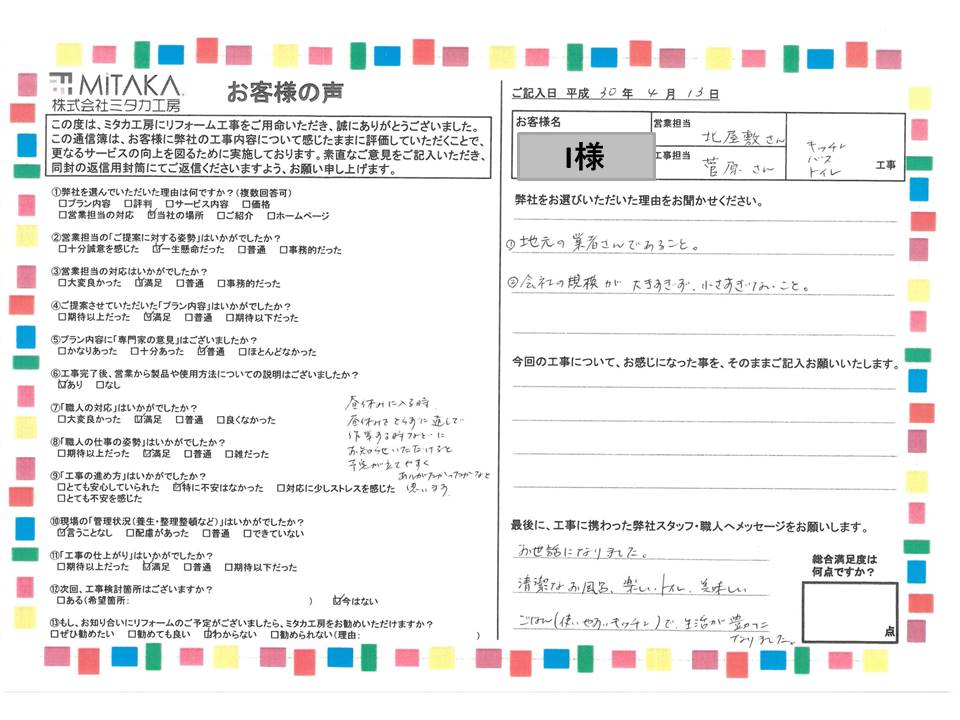 MiTAKA
株式会社ミタカ工房
お客様の声
この度は、ミタカ工房にリフォーム工事をご用命いただき、誠にありがとうございました。
この通信簿は、お客様に弊社の工事内容について感じたままに評価していただくことで、
更なるサービスの向上を図るために実施しております。素直なご意見をご記入いただき、
同封の返信用封筒にてご返信くださいますよう、お願い申し上げます。
①弊社を選んでいただいた理由は何ですか?(複数回答可)
□プラン内容 □評判 □サービス内容 □価格
□営業担当の対応 ☑当社の場所 □ご紹介 □ホームページ
②営業担当の「ご提案に対する姿勢」はいかがでしたか?
□十分誠意を感じた ☑一生懸命だった □普通 □事務的だった
③営業担当の対応はいかがでしたか?
□大変良かった ☑満足 □普通 □事務的だった
④ご提案させていただいた「プラン内容」はいかがでしたか?
□期待以上だった ☑満足 □普通 □期待以下だった
⑤プラン内容に「専門家の意見」はございましたか?
□かなりあった □十分あった ☑普通 □ほとんどなかった
⑥工事完了後、営業から製品や使用方法についての説明はございましたか?
☑あり □なし
⑦「職人の対応」はいかがでしたか?
□大変良かった ☑満足 □普通 □良くなかった
⑧「職人の仕事の姿勢」はいかがでしたか?
□期待以上だった ☑満足 □普通 □雑だった
昼休みに入る時、
昼休みをとらずに通しで
作業する時などに
お知らせいただけると
予定が立てやすく
ありがたかったかなと
思います
⑨「工事の進め方」はいかがでしたか?
□とても安心していられた ☑特に不安はなかった □対応に少しストレスを感じた
□とても不安を感じた
⑩現場の「管理状況(養生・整理整頓など)」はいかがでしたか?
☑言うことなし □配慮があった □普通 □できていない
⑪「工事の仕上がり」はいかがでしたか?
□期待以上だった ☑満足 □普通 □期待以下だった
⑫次回、工事検討箇所はございますか?
□ある(希望箇所: ) ☑今はない
⑬もし、お知り合いにリフォームのご予定がございましたら、ミタカ工房をお勧めいただけますか?
□ぜひ勧めたい □勧めても良い ☑わからない □勧められない(理由: )
ご記入日 平成 30 年 4 月 13 日
お客様名
I様
営業担当 北屋敷さん
工事担当 菅原さん
キッチン
バス
トイレ 工事
弊社をお選びいただいた理由をお聞かせください。
①地元の業者さんであること。
②会社の規模が大きすぎず、小さすぎないこと。
今回の工事について、お感じになった事を、そのままご記入お願いいたします。
最後に、工事に携わった弊社スタッフ・職人へメッセージをお願いします。
お世話になりました。
清潔なお風呂、楽しいトイレ、美味しい
ごはん(使いやすいキッチン)で、生活が豊かに
なりました。
総合満足度は
何点ですか?
点